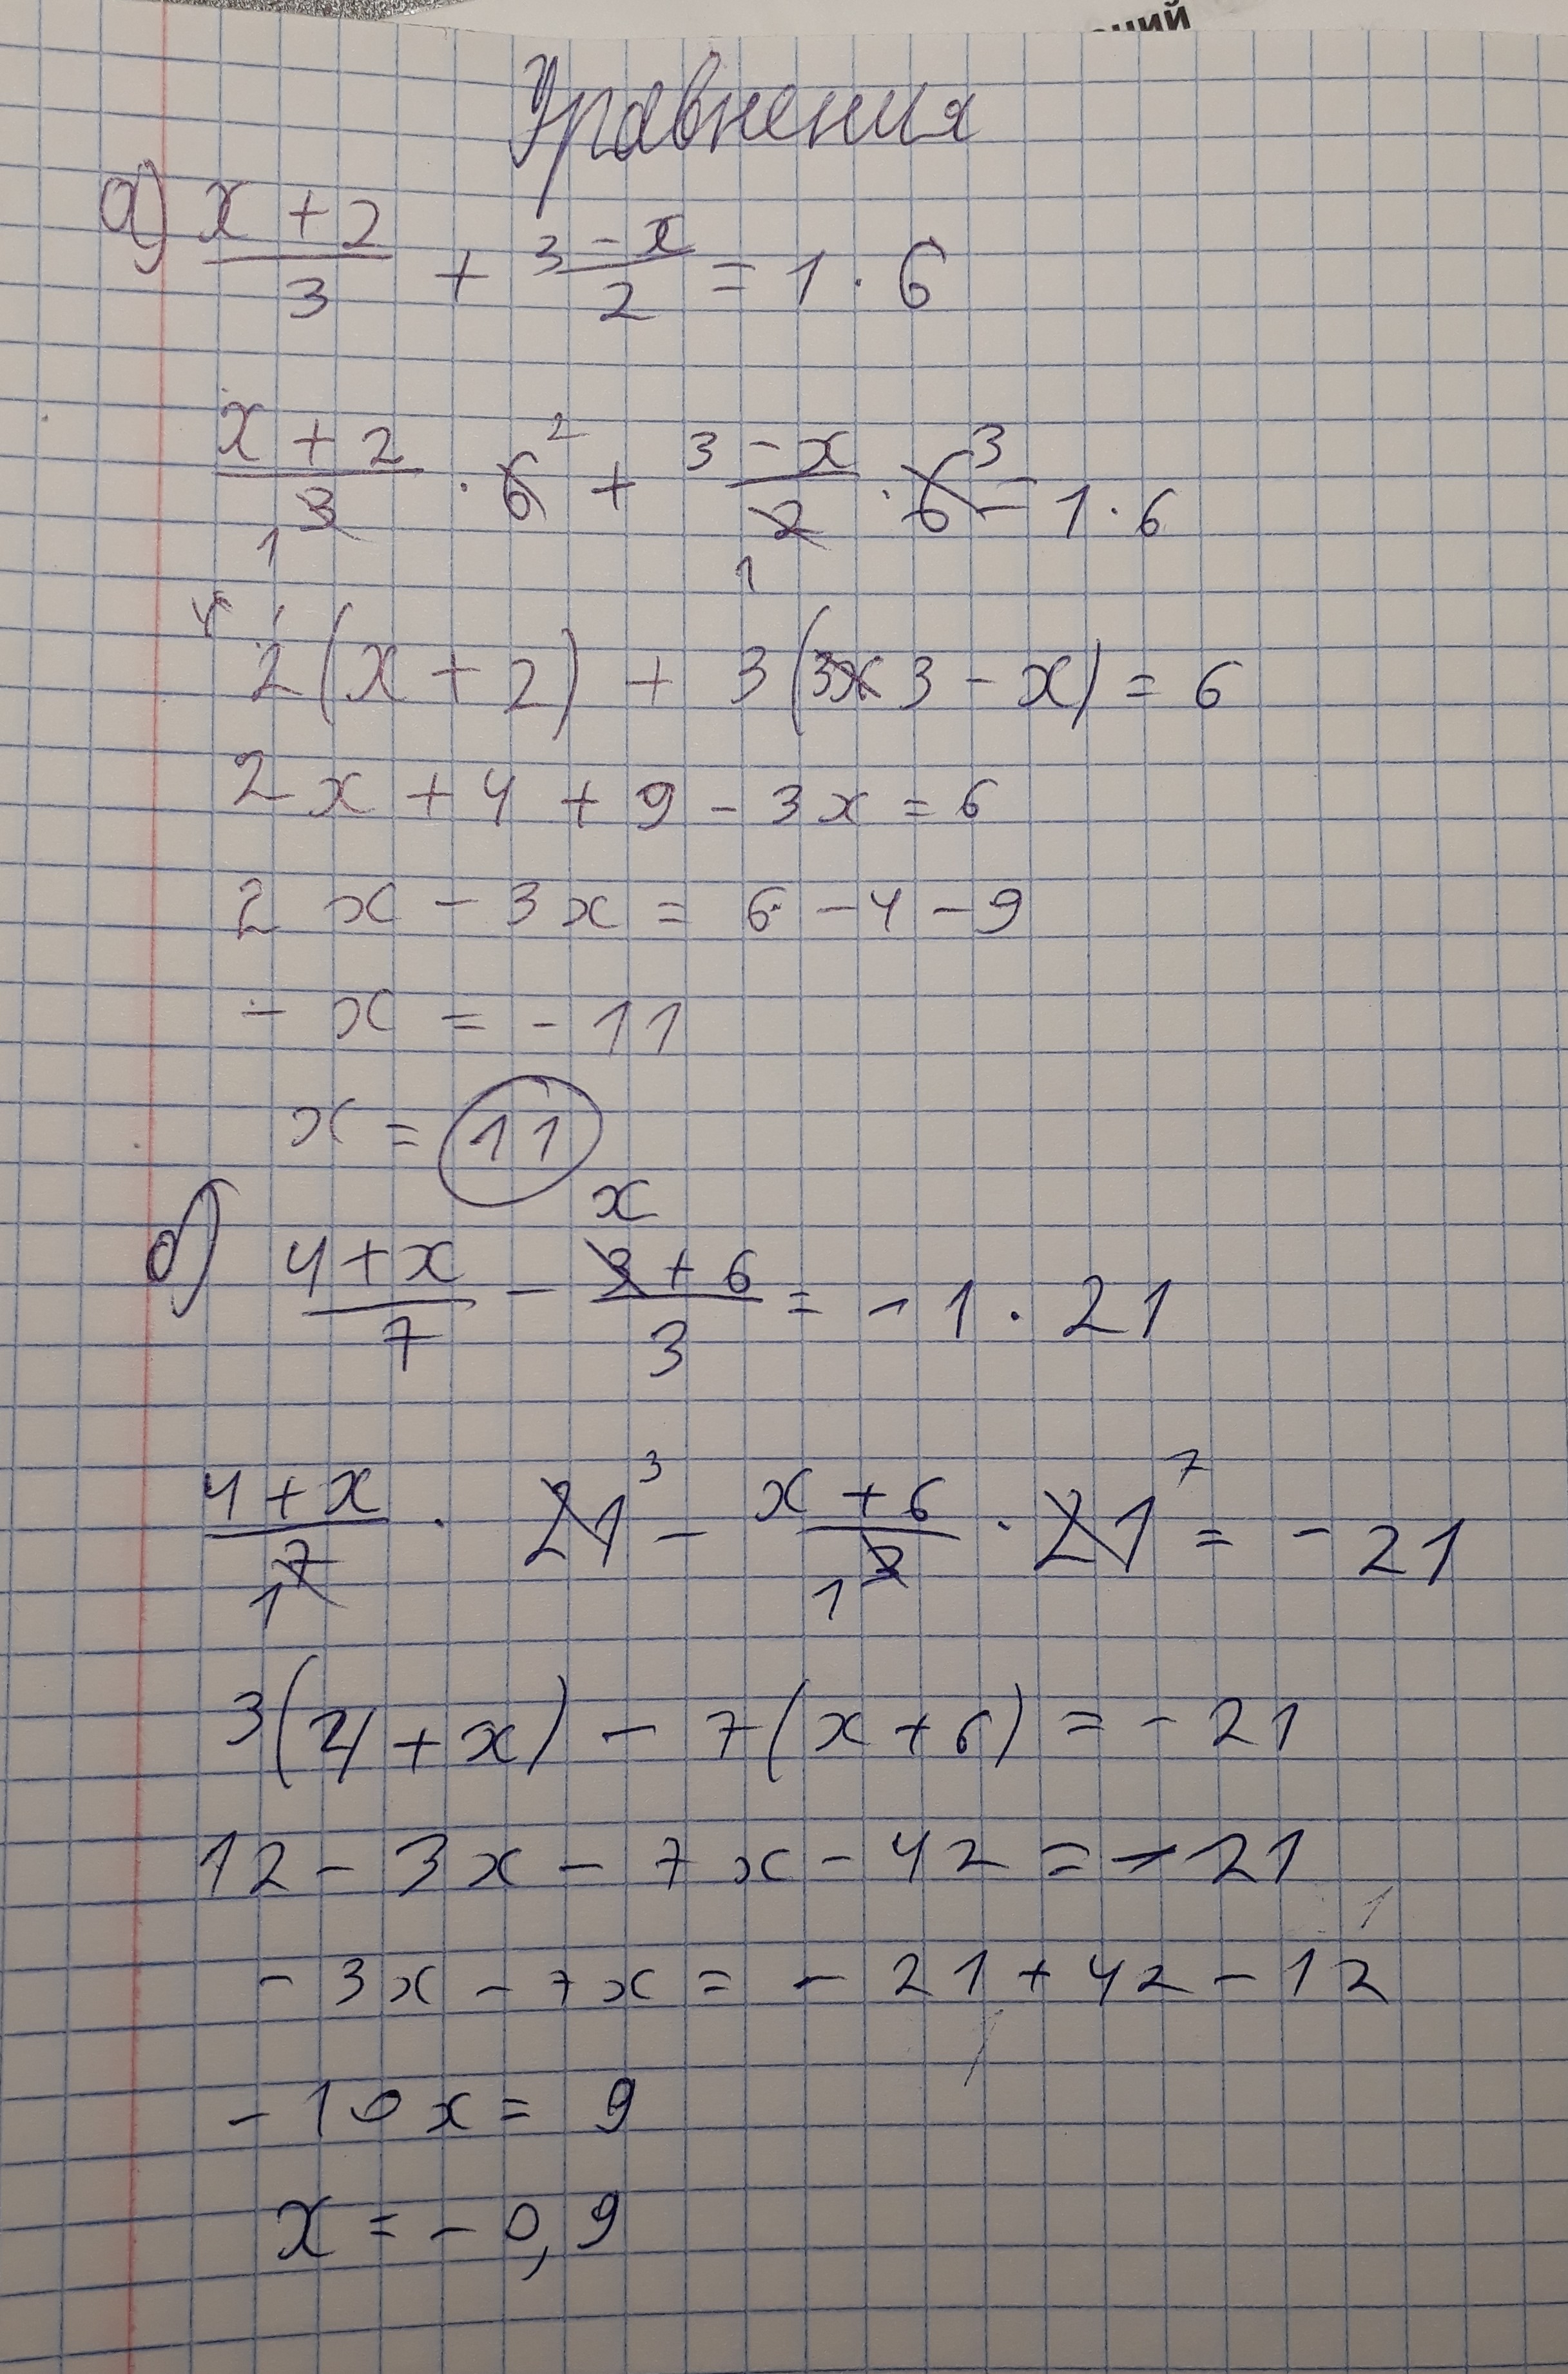 ений
Уравнения
а) x + 2 / 3 + 3 - x / 2 = 1 · 6
x + 2 / 3 1 · 6 2 + 3 - x / 2 1 · 6 3 = 1 · 6
2 (x + 2) + 3 (3x 3 - x) = 6
2x + 4 + 9 - 3x = 6
2x - 3x = 6 - 4 - 9
- x = - 11
x = 11
б) 4 + x / 7 - x + 6 / 3 = - 1 · 21
4 + x / 7 1 · 21 3 - x + 6 / 3 1 · 21 7 = - 21
3 (4 + x) - 7 (x + 6) = - 21
12 - 3x - 7x - 42 = - 21
- 3x - 7x = - 21 + 42 - 12
- 10x = 9
x = - 0,9